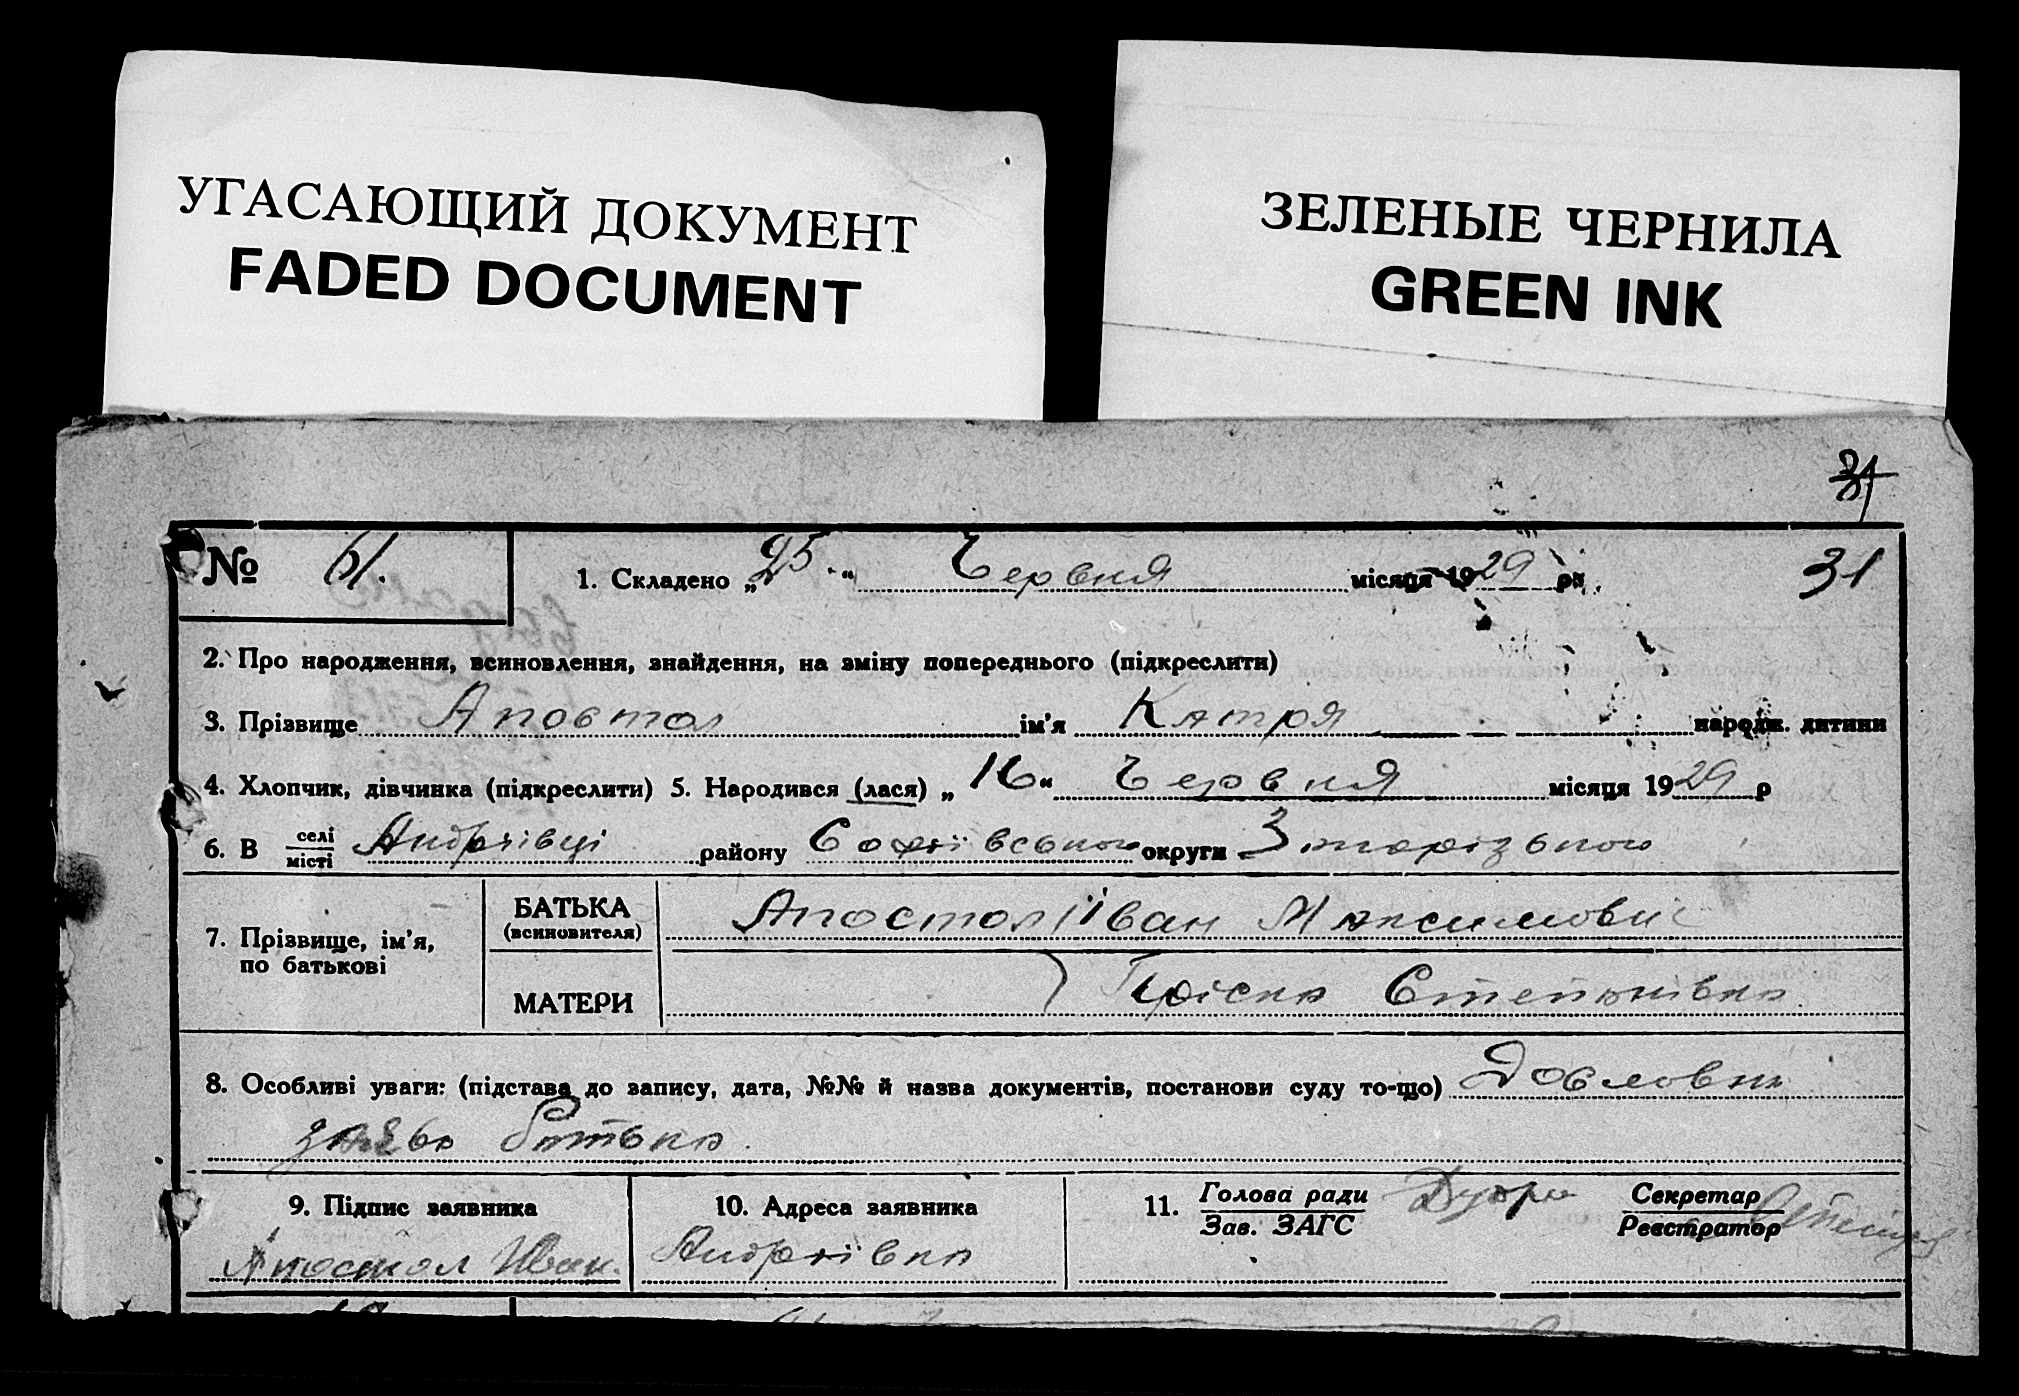 УГАСАЮЩИЙ ДОКУМЕНТ
FADED DOCUMENT
ЗЕЛЕНЫЕ ЧЕРНИЛА
GREEN INK
31
№ 61. 1. Складено „25.“ Червня місяця 1929 р. 31
2. Про народження, всиновлення, знайдення, на зміну попереднього (підкреслити)
3. Прізвище Апостол ім'я Катря народж. дитини
4. Хлопчик, дівчинка (підкреслити) 5. Народився (лася) „16“ Червня місяця 1929 р
6. В селі/місті Андріївці району Софіївського округи Запорізького
7. Прізвище, ім'я, по батькові
БАТЬКА (всиновителя) Апостол Іван Максимович
МАТЕРИ Пріська Степанівна
8. Особливі уваги: (підстава до запису, дата, №№ й назва документів, постанови суду то-що) Дословна
заява батька.
9. Підпис заявника 10. Адреса заявника 11. Голова ради/Зав. ЗАГС Секретар/Реєстратор
Апостол Иван. Андріївка